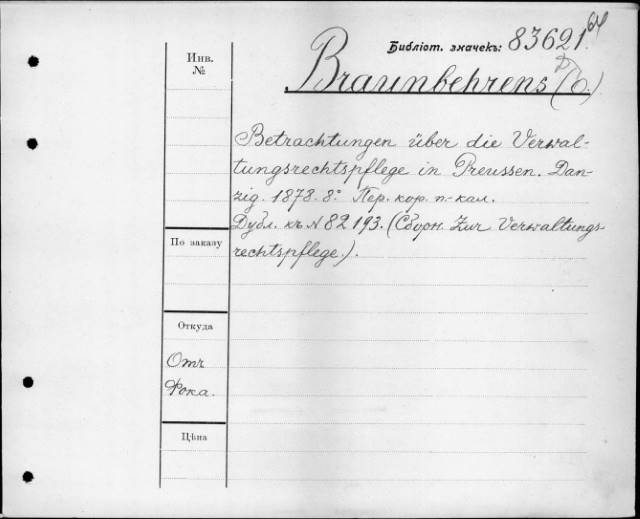 Библіот. значекъ: 83621 64
Инв.
№
Braunbehrens (O.)
Betrachtungen über die Verwal-
tungsrechtspflege in Preussen. Dan-
zig. 1878. 8°. Пер. кор. п.-кал.
Дубл. къ N 82193. (Сборн. Zur Verwaltungs-
rechtspflege.).
По заказу
Откуда
Отъ
Фока.
Цѣна